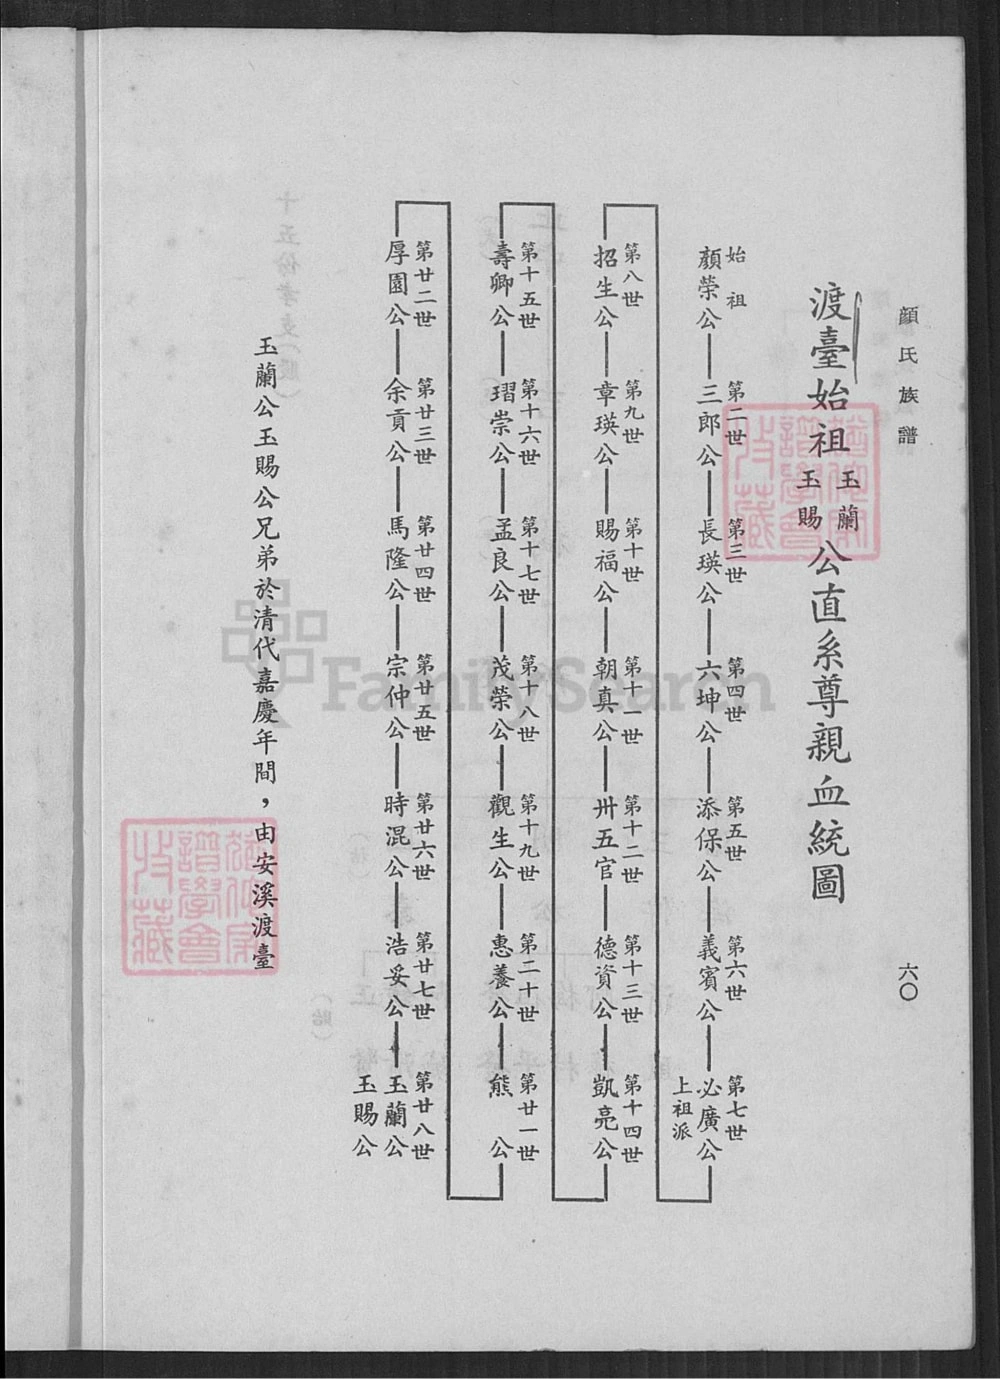 顏氏族譜
六〇
渡臺始祖玉蘭玉賜公直系尊親血統圖
始祖 顏榮公
第二世 三郎公
第三世 長瑛公
第四世 六坤公
第五世 添保公
第六世 義賓公
第七世 必廣公
上祖派
第八世 招生公
第九世 章瑛公
第十世 賜福公
第十一世 朝真公
第十二世 卅五官
第十三世 德資公
第十四世 凱亮公
第十五世 壽卿公
第十六世 瑁崇公
第十七世 孟良公
第十八世 茂榮公
第十九世 觀生公
第二十世 惠養公
第廿一世 熊公
第廿二世 厚園公
第廿三世 余貢公
第廿四世 馬隆公
第廿五世 宗仲公
第廿六世 時混公
第廿七世 浩妥公
第廿八世 玉蘭公
玉賜公
玉蘭公玉賜公兄弟於清代嘉慶年間，由安溪渡臺
FamilySearch